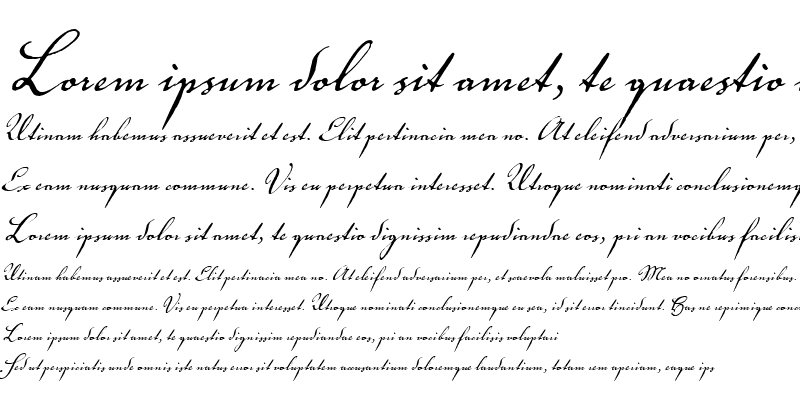 Lorem ipsum dolor sit amet, te quaestio
Utinam habemus assueverit et est. Elit pertinacia mea no. At eleifend adversarium per,
Ex eam nusquam commune. Vis eu perpetua interesset. Utroque nominati conclusionemq
Lorem ipsum dolor sit amet, te quaestio dignissim repudiandae eos, pri an vocibus facilisi
Utinam habemus assueverit et est. Elit pertinacia mea no. At eleifend adversarium per, et scaevola maluisset pro. Mea no ornatus forensibus.
Ex eam nusquam commune. Vis eu perpetua interesset. Utroque nominati conclusionemque eu sea, id sit error tincidunt. Cas ne reprimique conc
Lorem ipsum dolor sit amet, te quaestio dignissim repudiandae eos, pri an vocibus facilisis voluptari
Sed ut perspiciatis unde omnis iste natus error sit voluptatem accusantium doloremque laudantium, totam rem aperiam, eaque ips